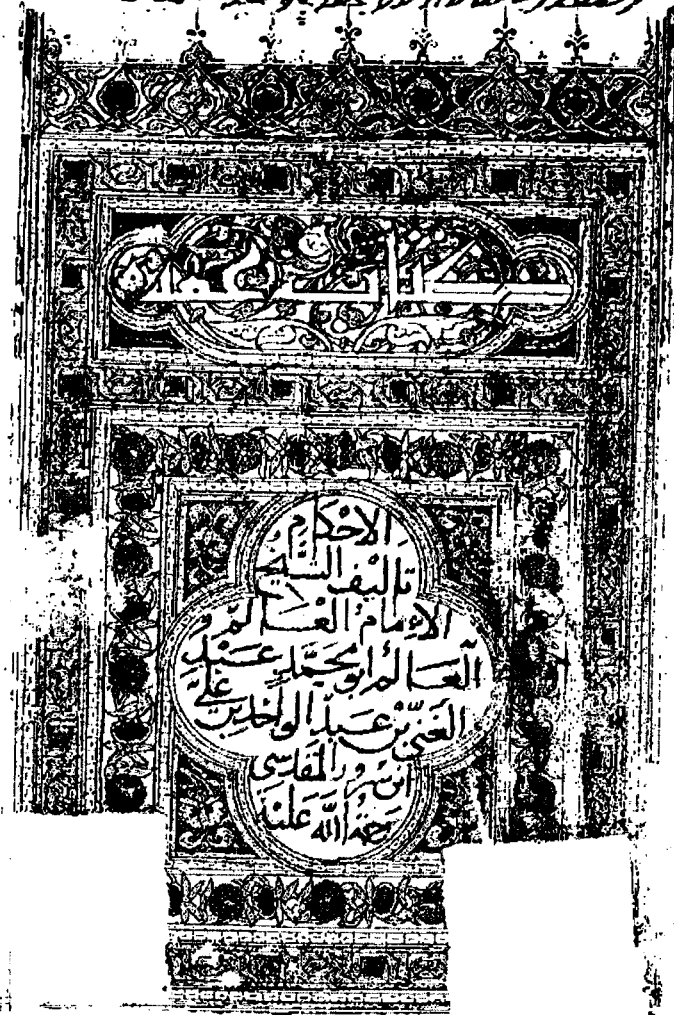 كتاب عمدة
الاحكام
تأليف الشيخ
الإمام العالم
العالم أبو محمد عبد
الغني بن عبد الواحد بن علي
ابن سرور المقدسي
رحمة الله عليه